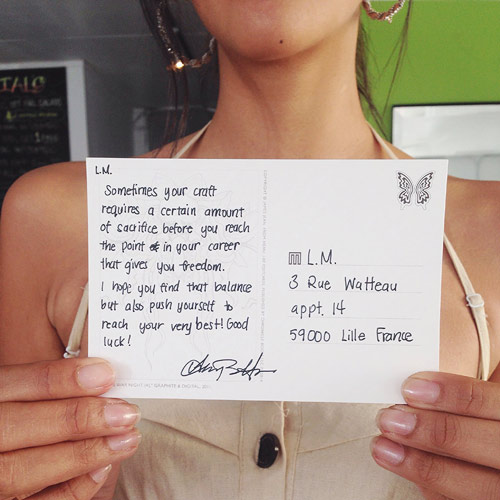 L.M.
Sometimes your craft
requires a certain amount
of sacrifice before you reach
the point in your career
that gives you freedom.
I hope you find that balance
but also push yourself to
reach your very best! Good
luck!
L.M.
3 Rue Watteau
appt. 14
59000 Lille France